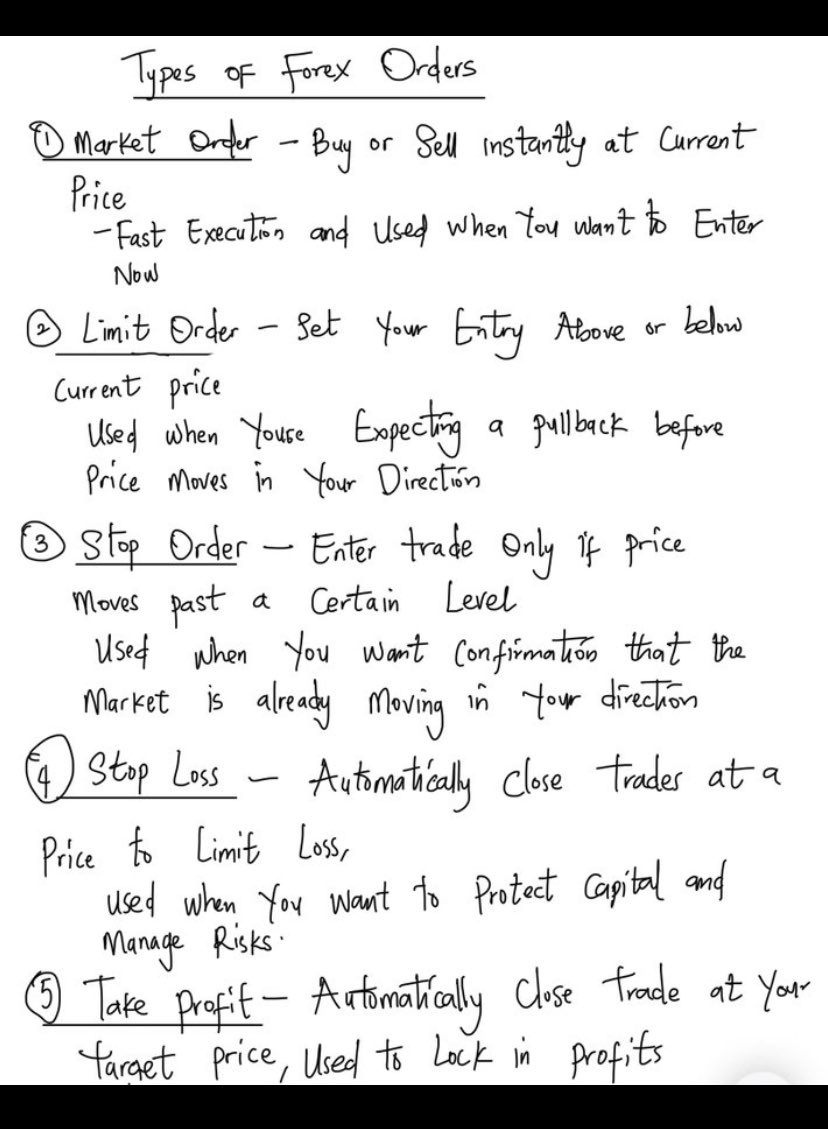 Types OF Forex Orders
① Market Order - Buy or Sell instantly at Current
Price
- Fast Execution and Used When You Want to Enter
Now
② Limit Order - Set Your Entry Above or below
Current price
Used when Youre Expecting a pullback before
Price Moves in Your Direction
③ Stop Order - Enter trade Only if price
Moves past a Certain Level
Used when You Want Confirmation that the
Market is already Moving in Your direction
④ Stop Loss - Automatically close trades at a
Price to Limit Loss,
Used when You Want to Protect Capital and
Manage Risks.
⑤ Take profit - Automatically Close trade at Your
target price, Used to Lock in profits